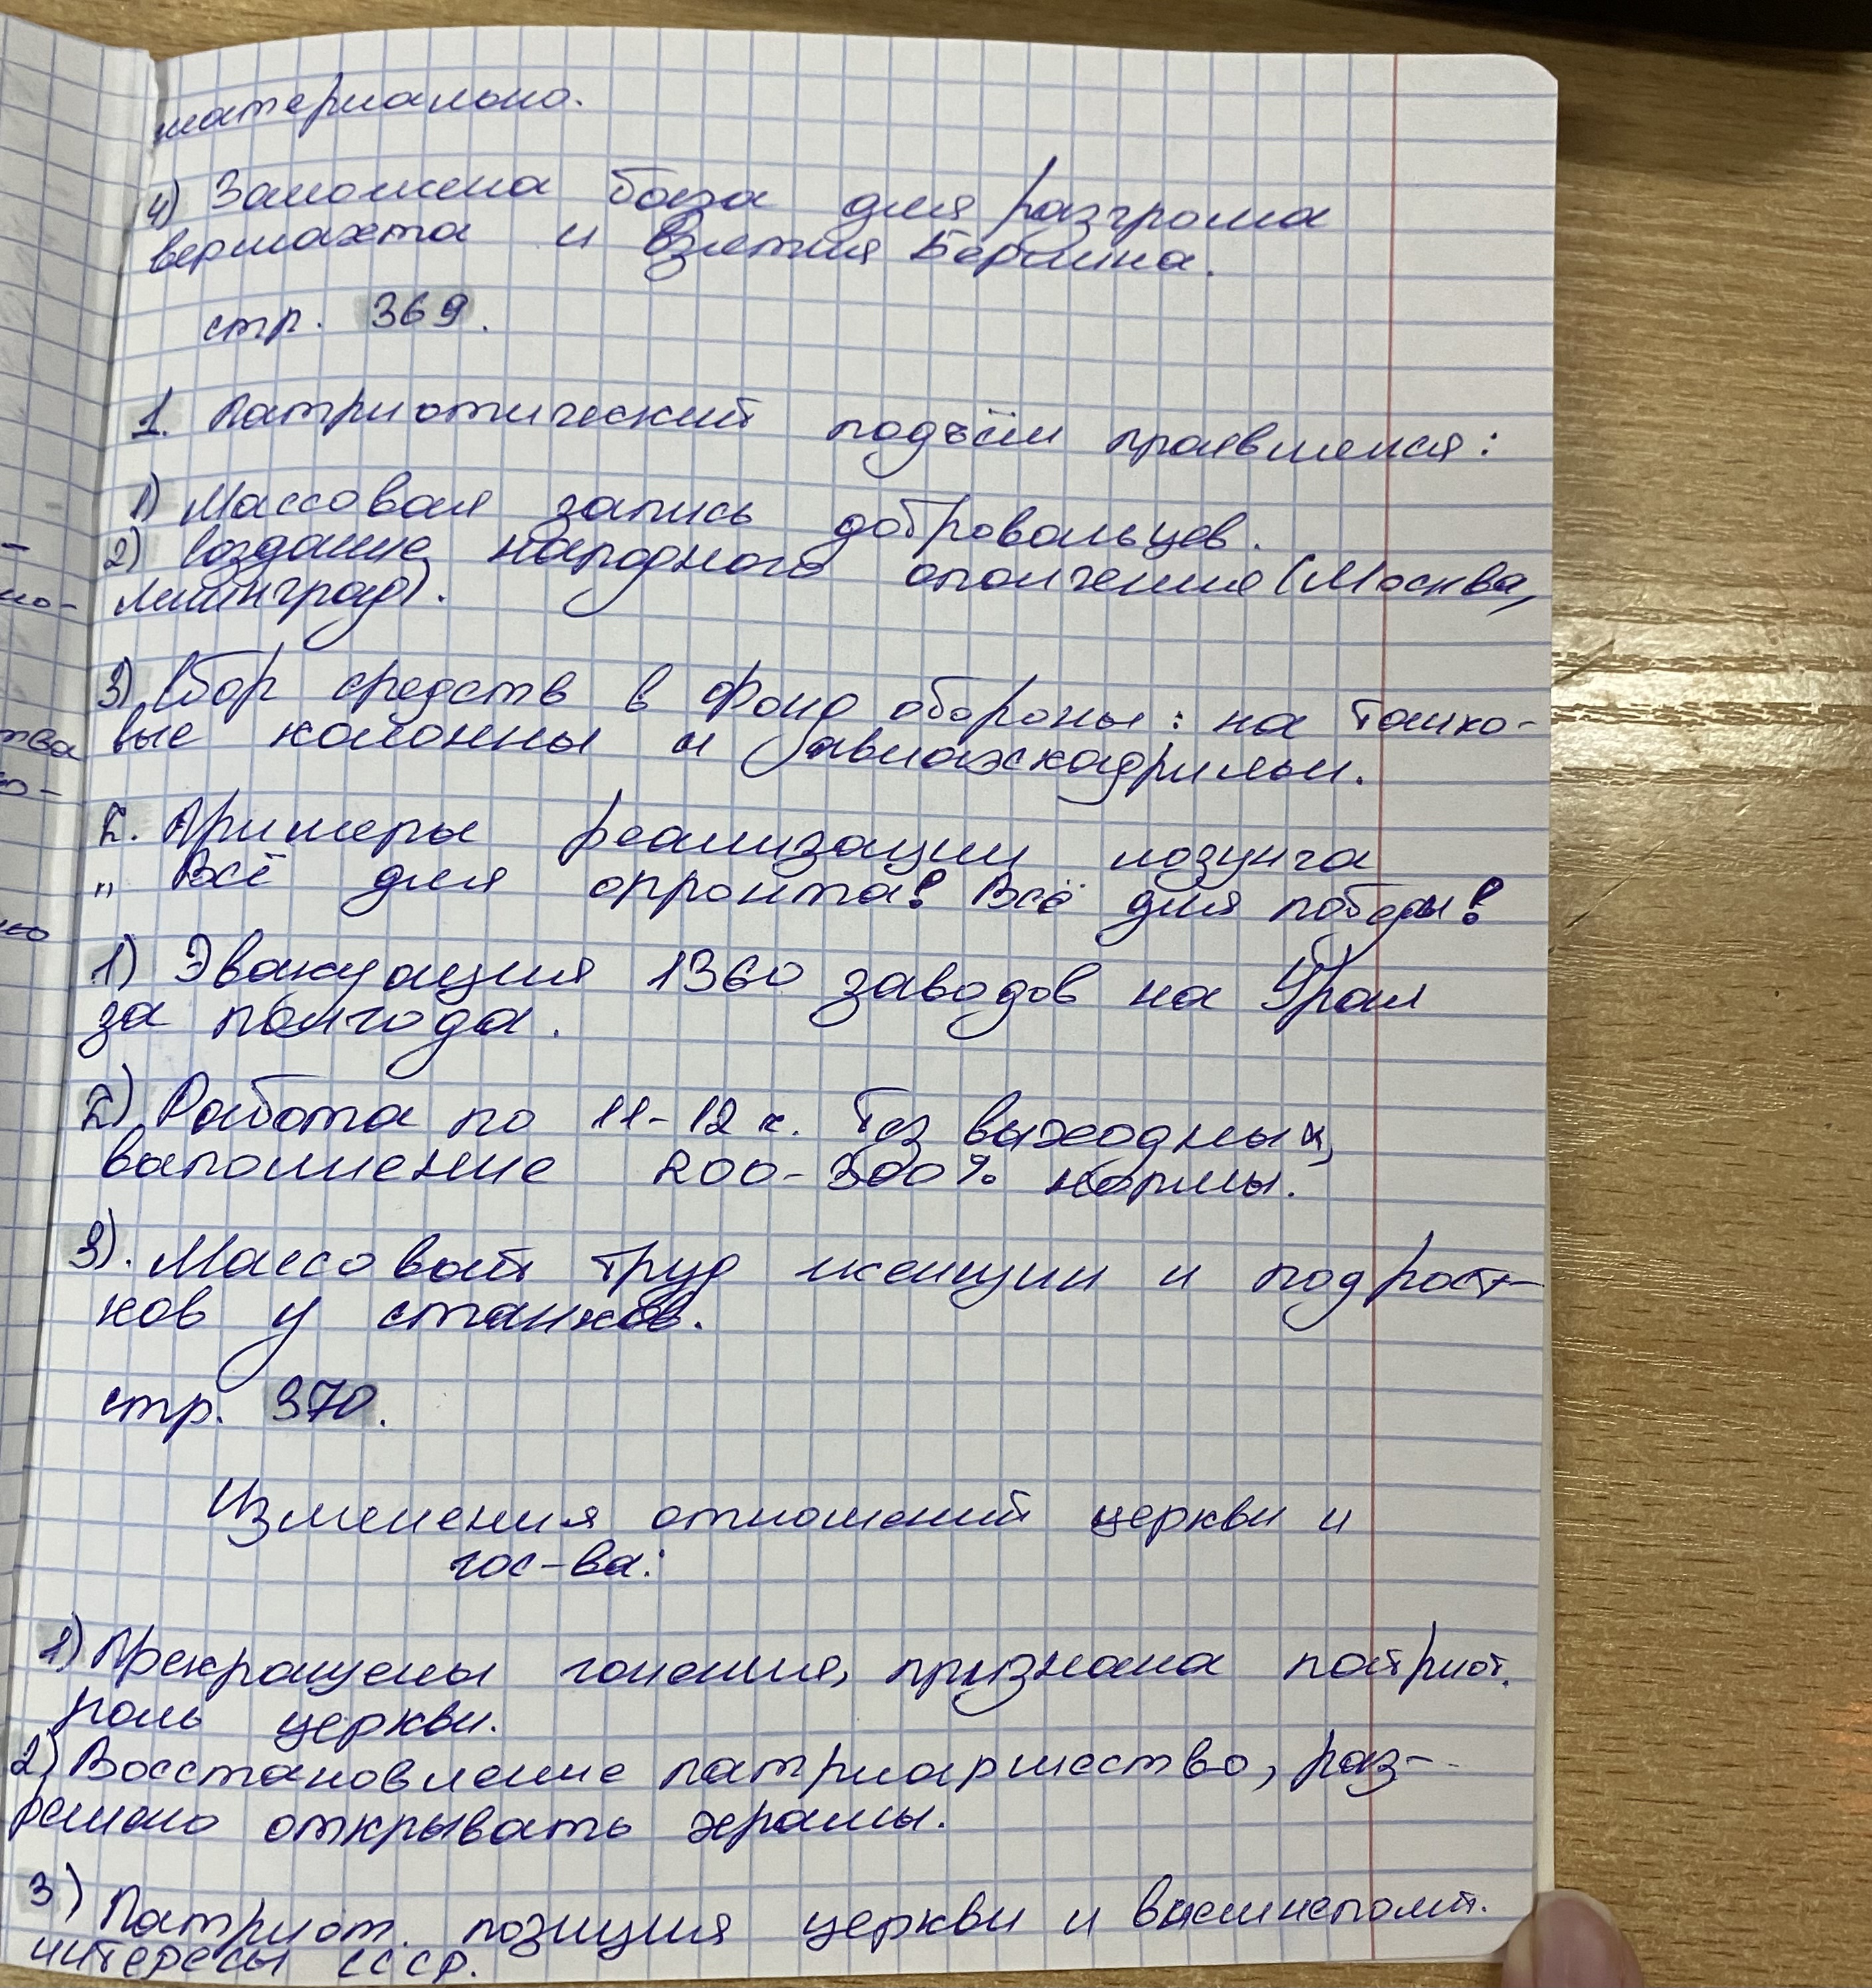 материально.
4) Заложена база для разгрома
вермахта и взятия Берлина.
стр. 369.
1. Патриотический подъём проявлялся:
1) Массовая запись добровольцев.
2) Создание народного ополчение (Москва,
Ленинград).
3) Сбор средств в Фонд обороны: на танко-
вые колонны и авиаэскадрильи.
2. Примеры реализации лозунга
„ Всё для фронта! Всё для победы!
1) Эвакуация 1360 заводов на Урал
за полгода.
2) Работа по 11-12 ч. без выходных,
выполнение 200-300% нормы.
3). Массовый труд женщин и подрост-
ков у станков.
стр. 370.
Изменения отношений церкви и
гос-ва:
1) Прекращены гонения, признана патриот.
роль церкви.
2) Восстановление патриаршество, раз-
решено открывать храмы.
3) Патриот. позиция церкви и внешнеполит.
интересы СССР.
-
но-
тва
о-
ко